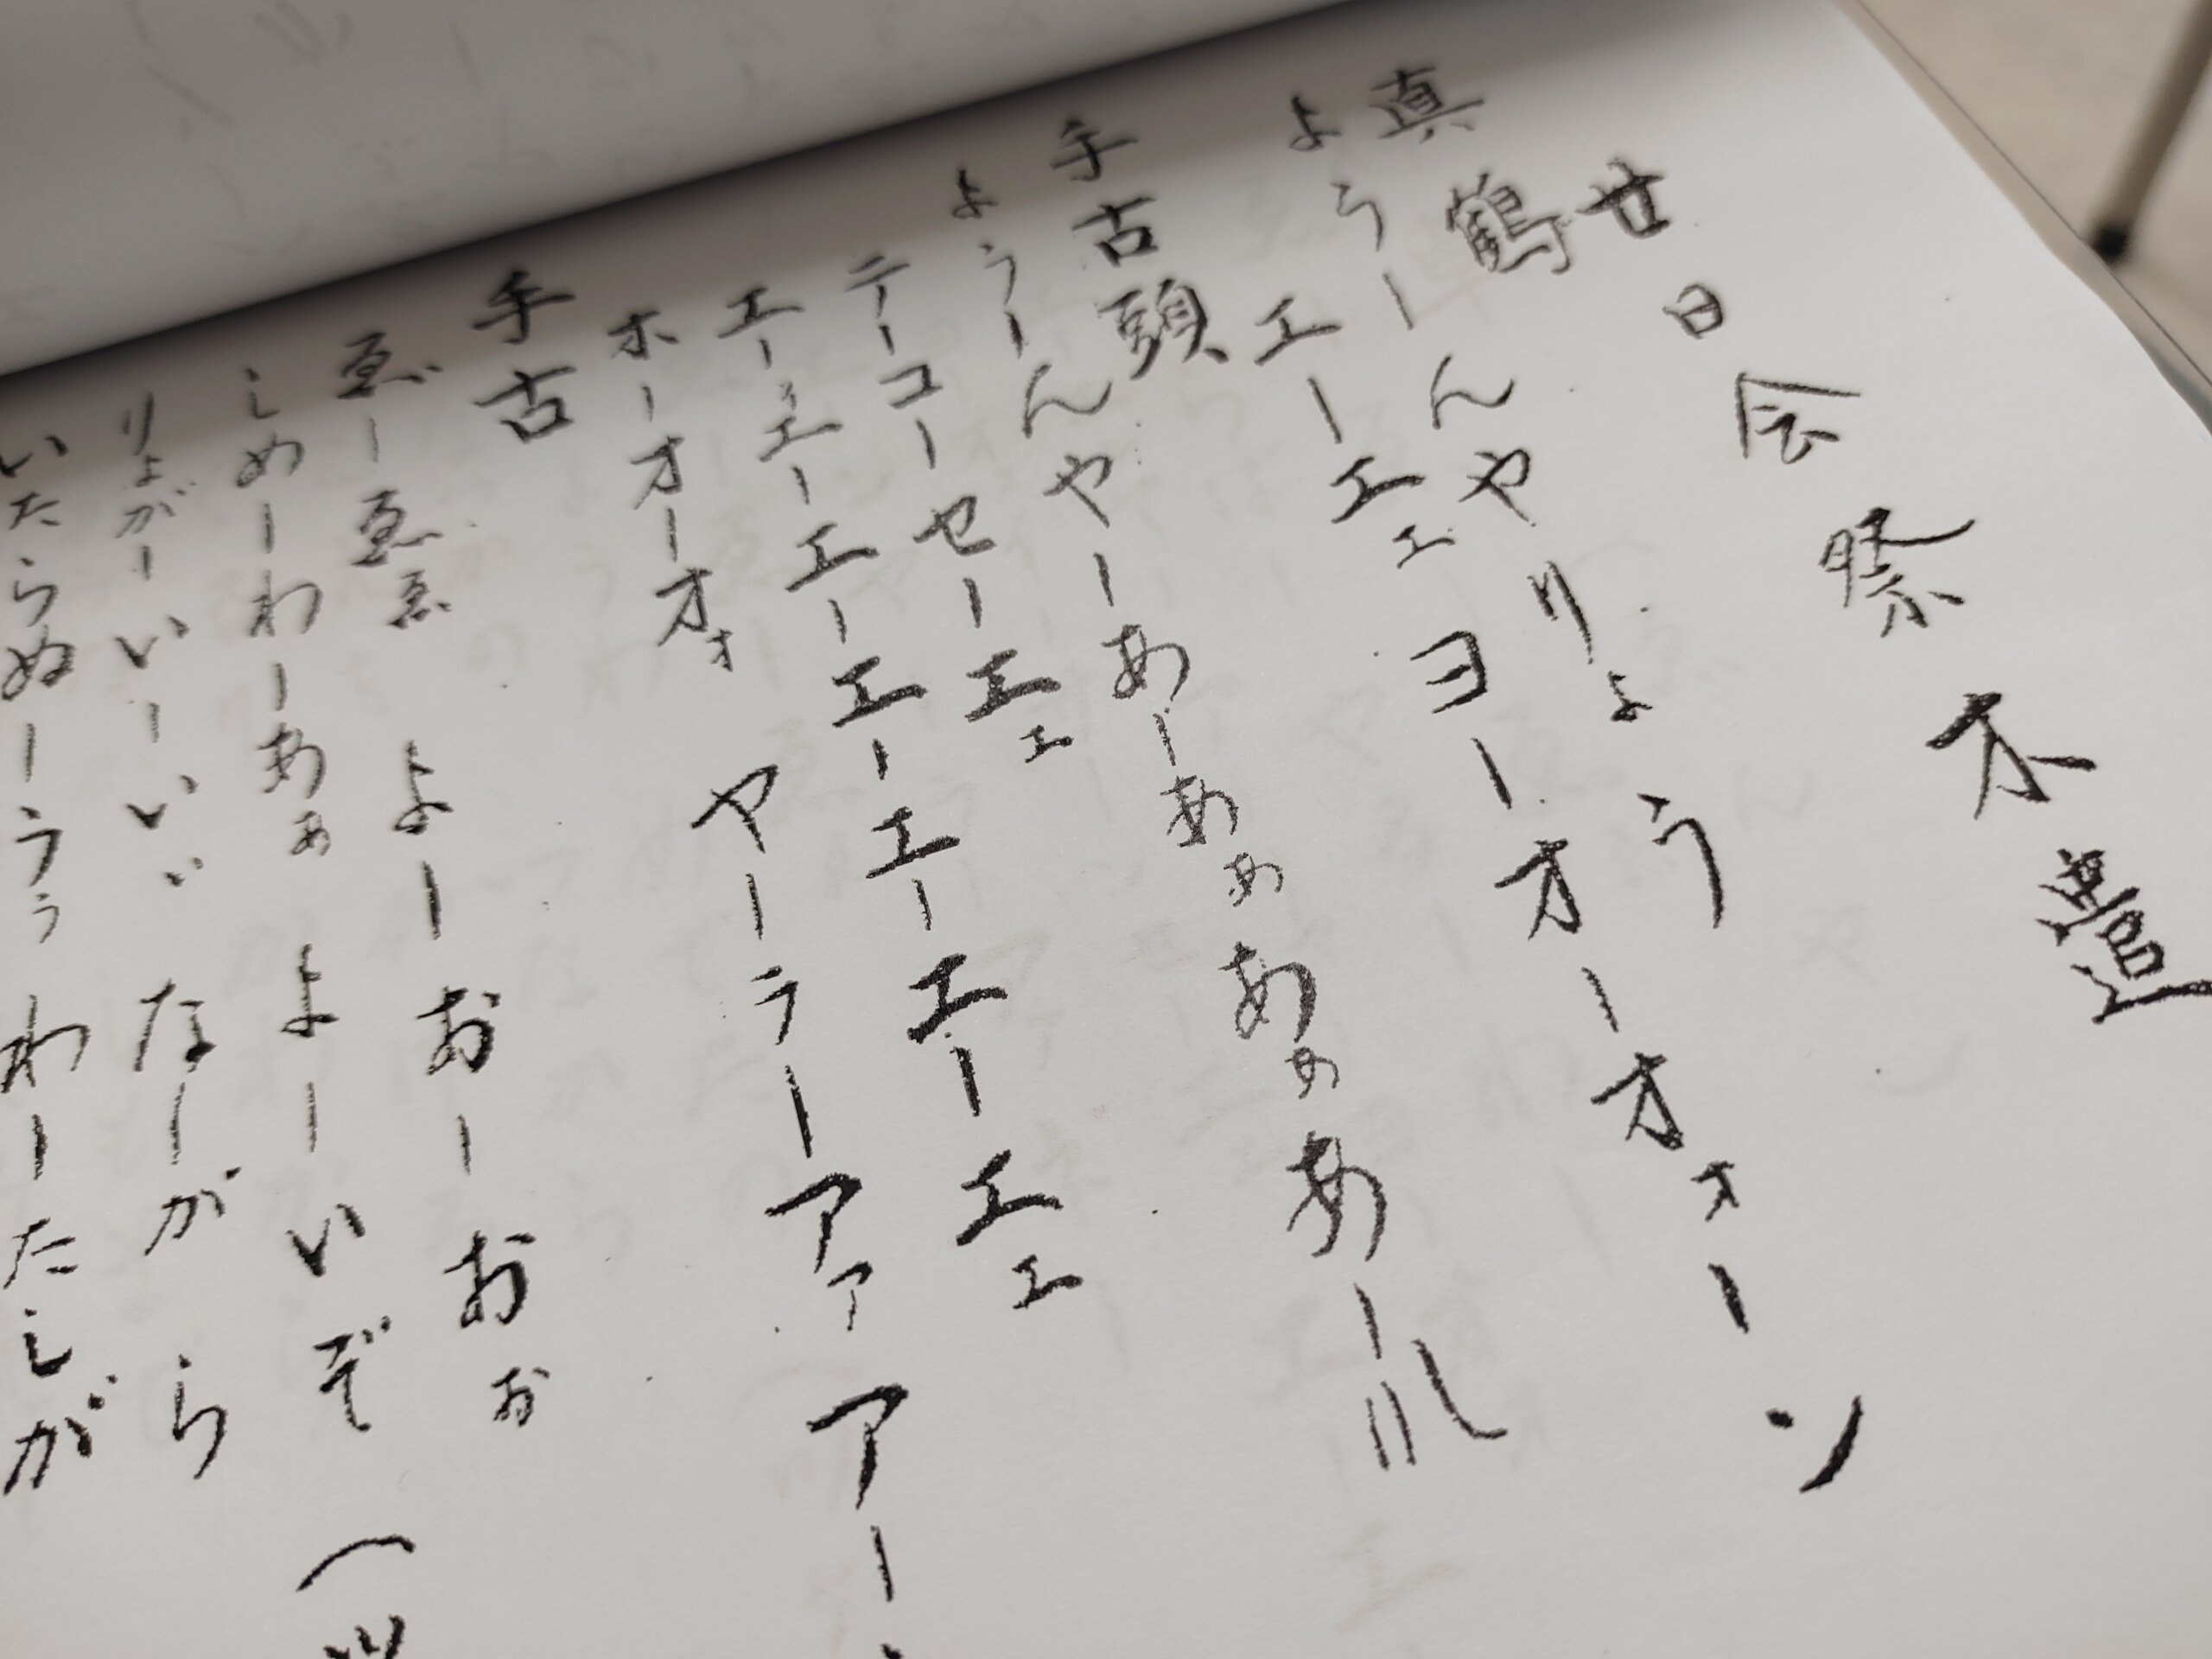 廿日会祭木遣
真鶴
よぅーんやりょう
エーエェヨーオーオォーン
手古頭
よぅーんやーあーあぁあぁあール
テーコーセーエェ
エーエーエーエーエーエーエェ
ホーオーオォヤーラーアァアー
手古
ゑーゑゑよーおーおぉ
しめーわーあぁよーいぞ
りょがーいーいぃなーがら
いたらぬーうぅわーたしが